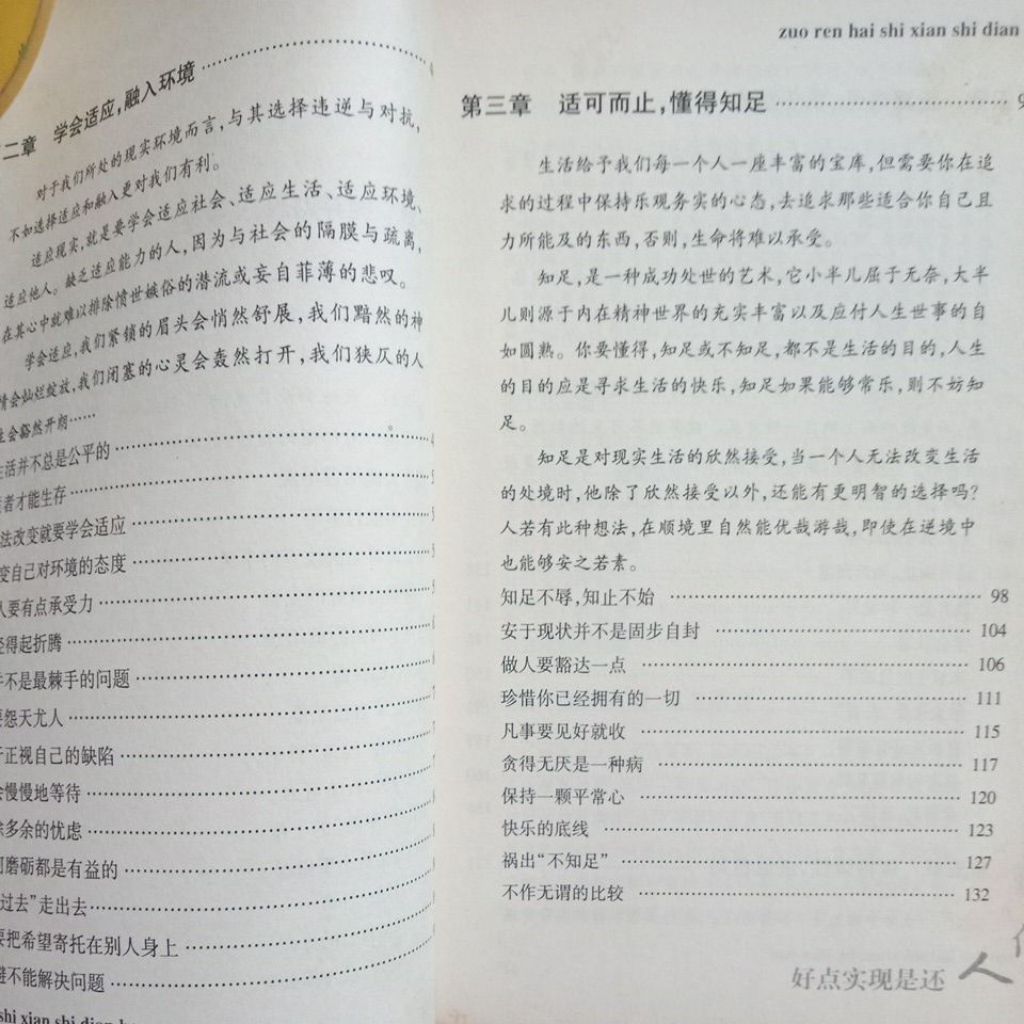 二章 学会适应,融入环境
对于我们所处的现实环境而言,与其选择违逆与对抗,
不如选择适应和融入更对我们有利。
适应现实,就是要学会适应社会、适应生活、适应环境、
适应他人。缺乏适应能力的人,因为与社会的隔膜与疏离,
在其心中就难以排除愤世嫉俗的潜流或妄自菲薄的悲叹。
学会适应,我们紧锁的眉头会悄然舒展,我们黯然的神
情会灿烂绽放,我们闭塞的心灵会轰然打开,我们狭仄的人
生会豁然开朗……
生活并不总是公平的
者才能生存
法改变就要学会适应
变自己对环境的态度
人要有点承受力
经得起折腾
不是最棘手的问题
怨天尤人
正视自己的缺陷
慢慢地等待
多余的忧虑
磨砺都是有益的
过去”走出去
要把希望寄托在别人身上
避不能解决问题
zuo ren hai shi xian shi dian
第三章 适可而止,懂得知足
生活给予我们每一个人一座丰富的宝库,但需要你在追
求的过程中保持乐观务实的心态,去追求那些适合你自己且
力所能及的东西,否则,生命将难以承受。
知足,是一种成功处世的艺术,它小半儿屈于无奈,大半
儿则源于内在精神世界的充实丰富以及应付人生世事的自
如圆熟。你要懂得,知足或不知足,都不是生活的目的,人生
的目的应是寻求生活的快乐,知足如果能够常乐,则不妨知
足。
知足是对现实生活的欣然接受,当一个人无法改变生活
的处境时,他除了欣然接受以外,还能有更明智的选择吗?
人若有此种想法,在顺境里自然能优哉游哉,即使在逆境中
也能够安之若素。
知足不辱,知止不殆 98
安于现状并不是固步自封 104
做人要豁达一点 106
珍惜你已经拥有的一切 111
凡事要见好就收 115
贪得无厌是一种病 117
保持一颗平常心 120
快乐的底线 123
祸出“不知足” 127
不作无谓的比较 132
好点实现是还 人